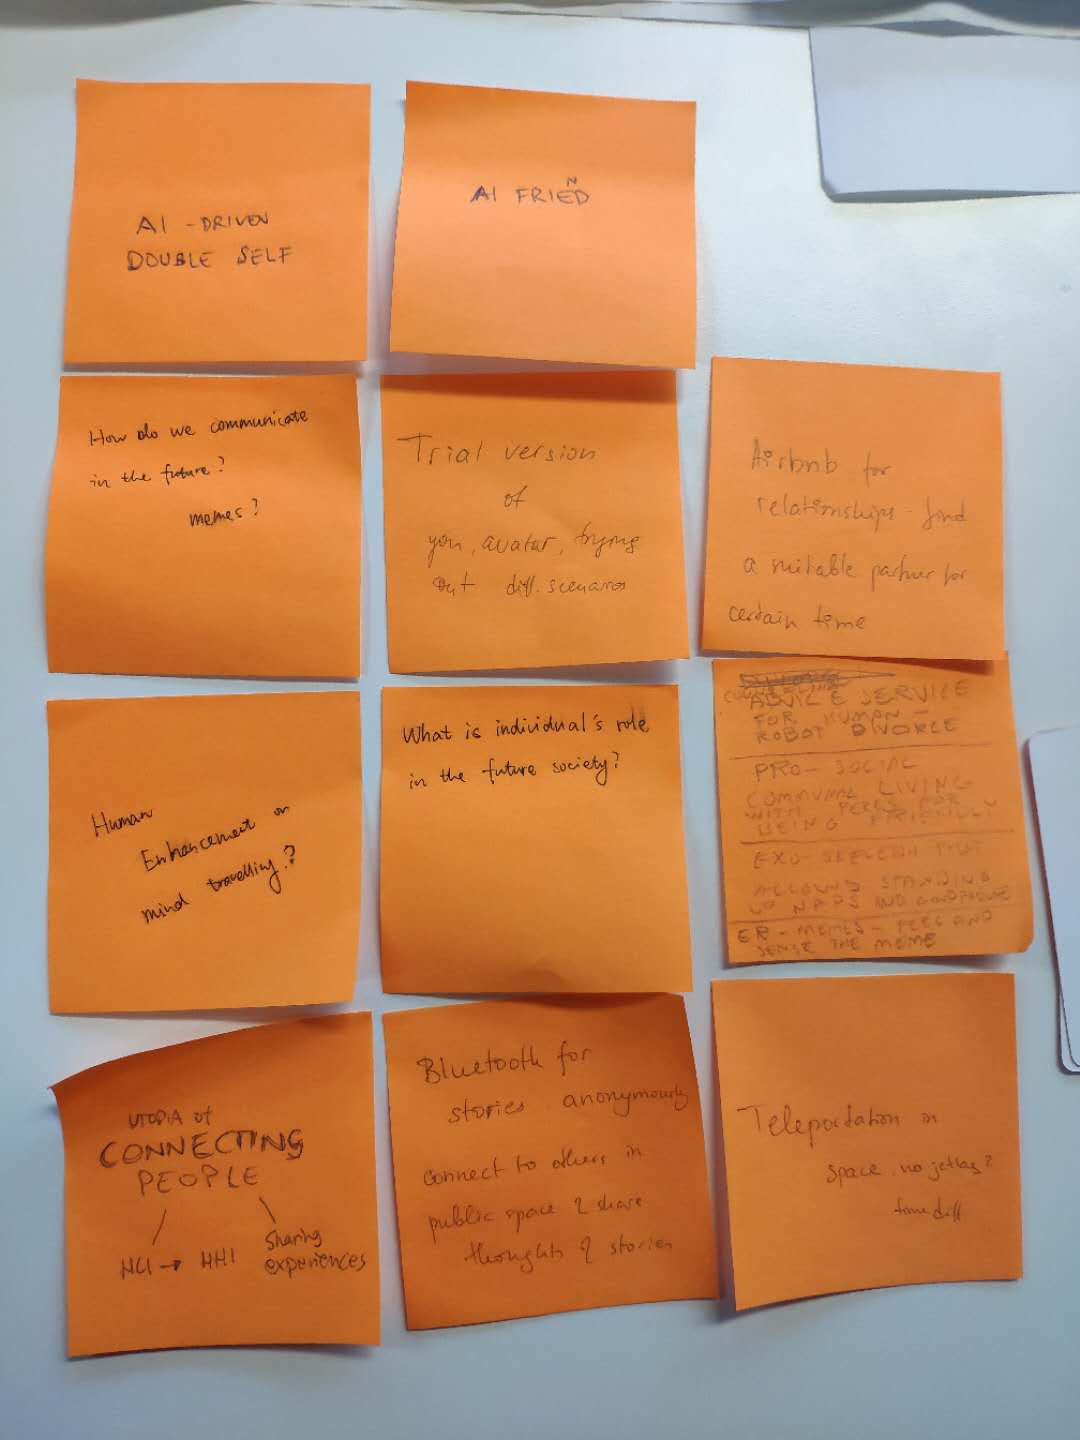 AI - DRIVEN
DOUBLE SELF
AI FRIEND
How do we communicate
in the future?
memes?
Trial version
of
you, avatar, trying
out diff. scenarios
Airbnb for
relationships - find
a suitable partner for
certain time
Human
Enhancement or
mind travelling?
What is individual's role
in the future society?
ADVICE SERVICE
FOR HUMAN -
ROBOT DIVORCE
PRO - SOCIAL
COMMUNAL LIVING
WITH PERKS FOR
BEING FRIENDLY
EXO - SKELETON THAT
ALLOWS STANDING
UP NAPS AND
ER - MEMES - FEEL AND
SENSE THE MEME
UTOPIA of
CONNECTING
PEOPLE
HCI → HHI
Sharing
experiences
Bluetooth for
stories anonymously
connect to others in
public space & share
thoughts & stories
Teleportation in
space no jetlag?
time diff